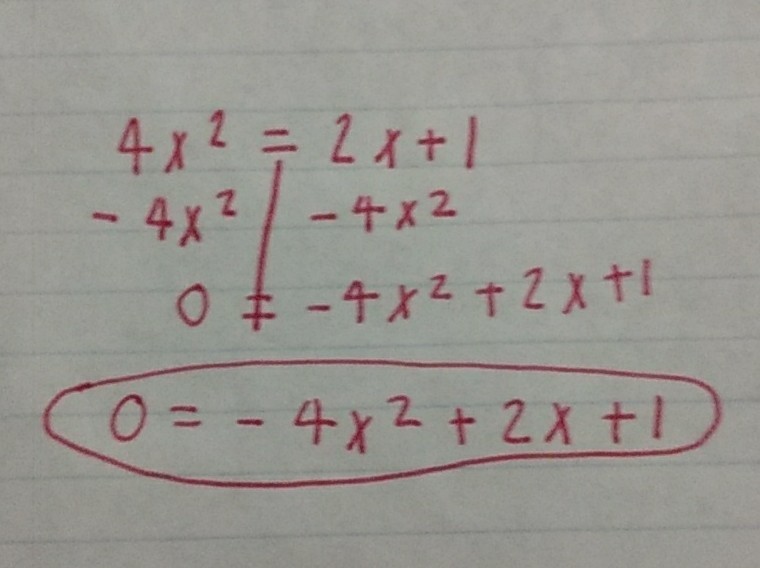 4x² = 2x + 1
- 4x² | - 4x²
0 = - 4x² + 2x + 1
0 = - 4x² + 2x + 1